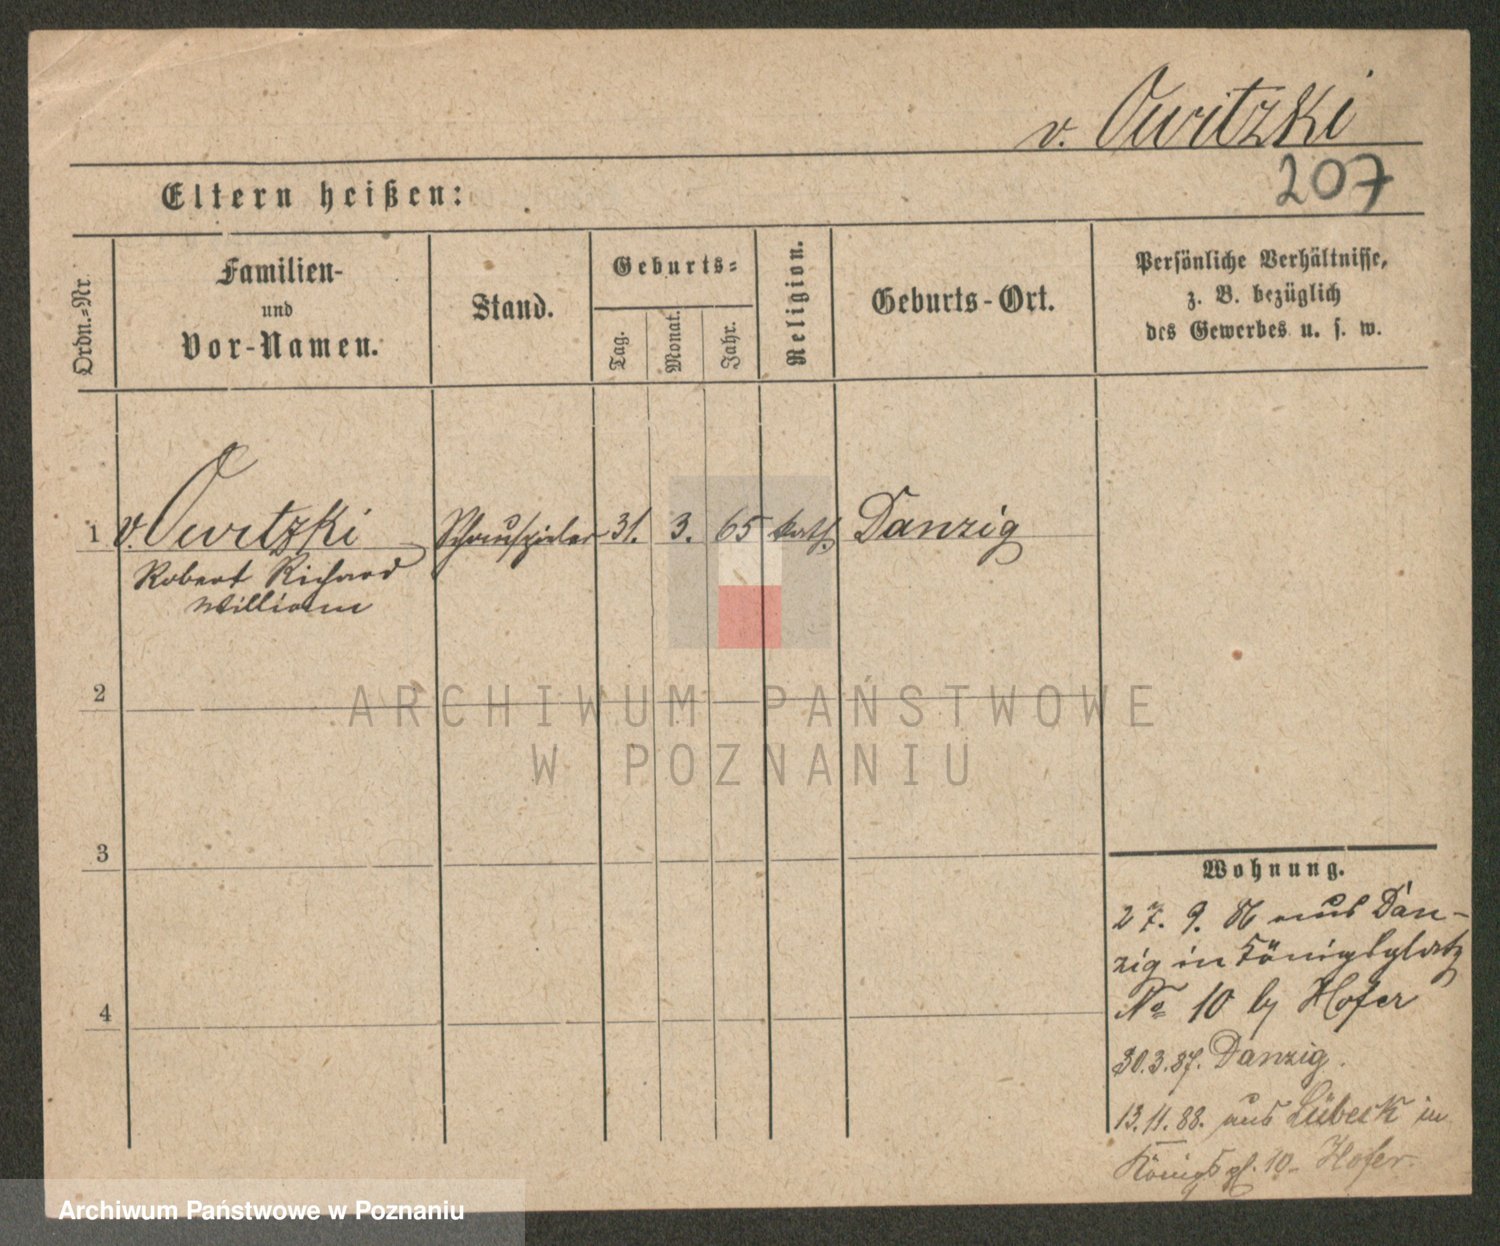 v. Owitzki
207
Eltern heißen:
Ordn.-Nr
Familien-
und
Vor-Namen.
Stand.
Geburts-
Tag.
Monat.
Jahr.
Religion.
Geburts-Ort.
Persönliche Verhältnisse,
z. B. bezüglich
des Gewerbes u. s. w.
1 v. Owitzki Schauspieler 31. 3. 65 kath. Danzig
Robert Richard
William
2
3
4
Wohnung.
27. 9. 86 aus Dan-
zig in Königsplatz
No 10 by Hofer
30.3.87. Danzig.
13.11.88. aus Lübeck in
Königspl. 10 Hofer.
ARCHIWUM PAŃSTWOWE
W POZNANIU
Archiwum Państwowe w Poznaniu